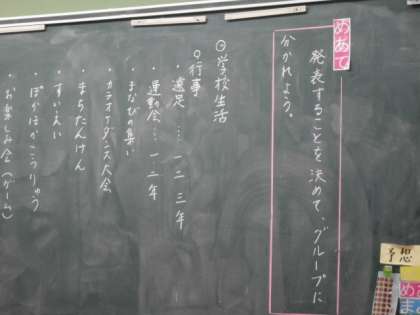 めあて
発表することを決めて、グループに
分かれよう。
◎学校生活
○行事
・遠足……一二三年
・運動会……一二年
・まなびの集い
・カラオケダンス大会
・まちたんけん
・すいえい
・ぽかぽかこうりゅう
・お楽しみ会(ゲーム)
予想